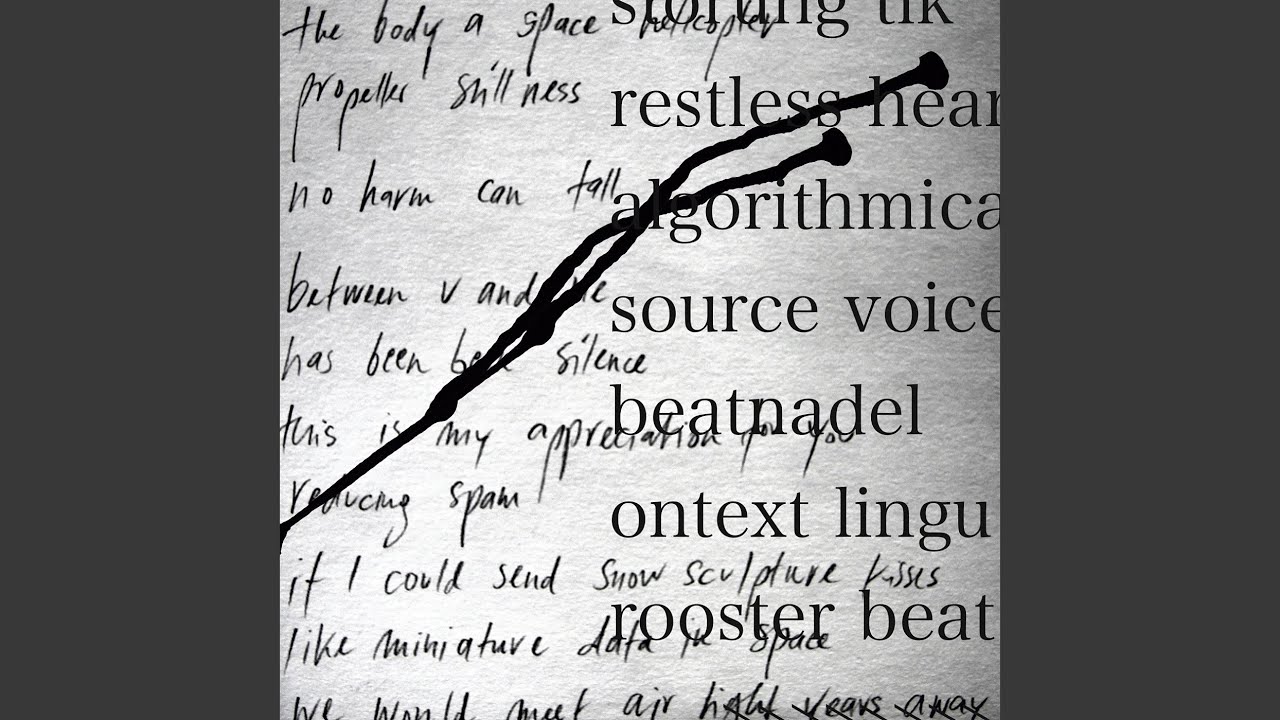 the body a space helicopter
propeller stillness
no harm can fall
between v and me
has been silence
this is my appreciation for you
reducing spam
if I could send snow sculpture kisses
like miniature data in space
we would meet air light years away
restless hear
algorithmica
source voice
beatnadel
ontext lingu
rooster beat